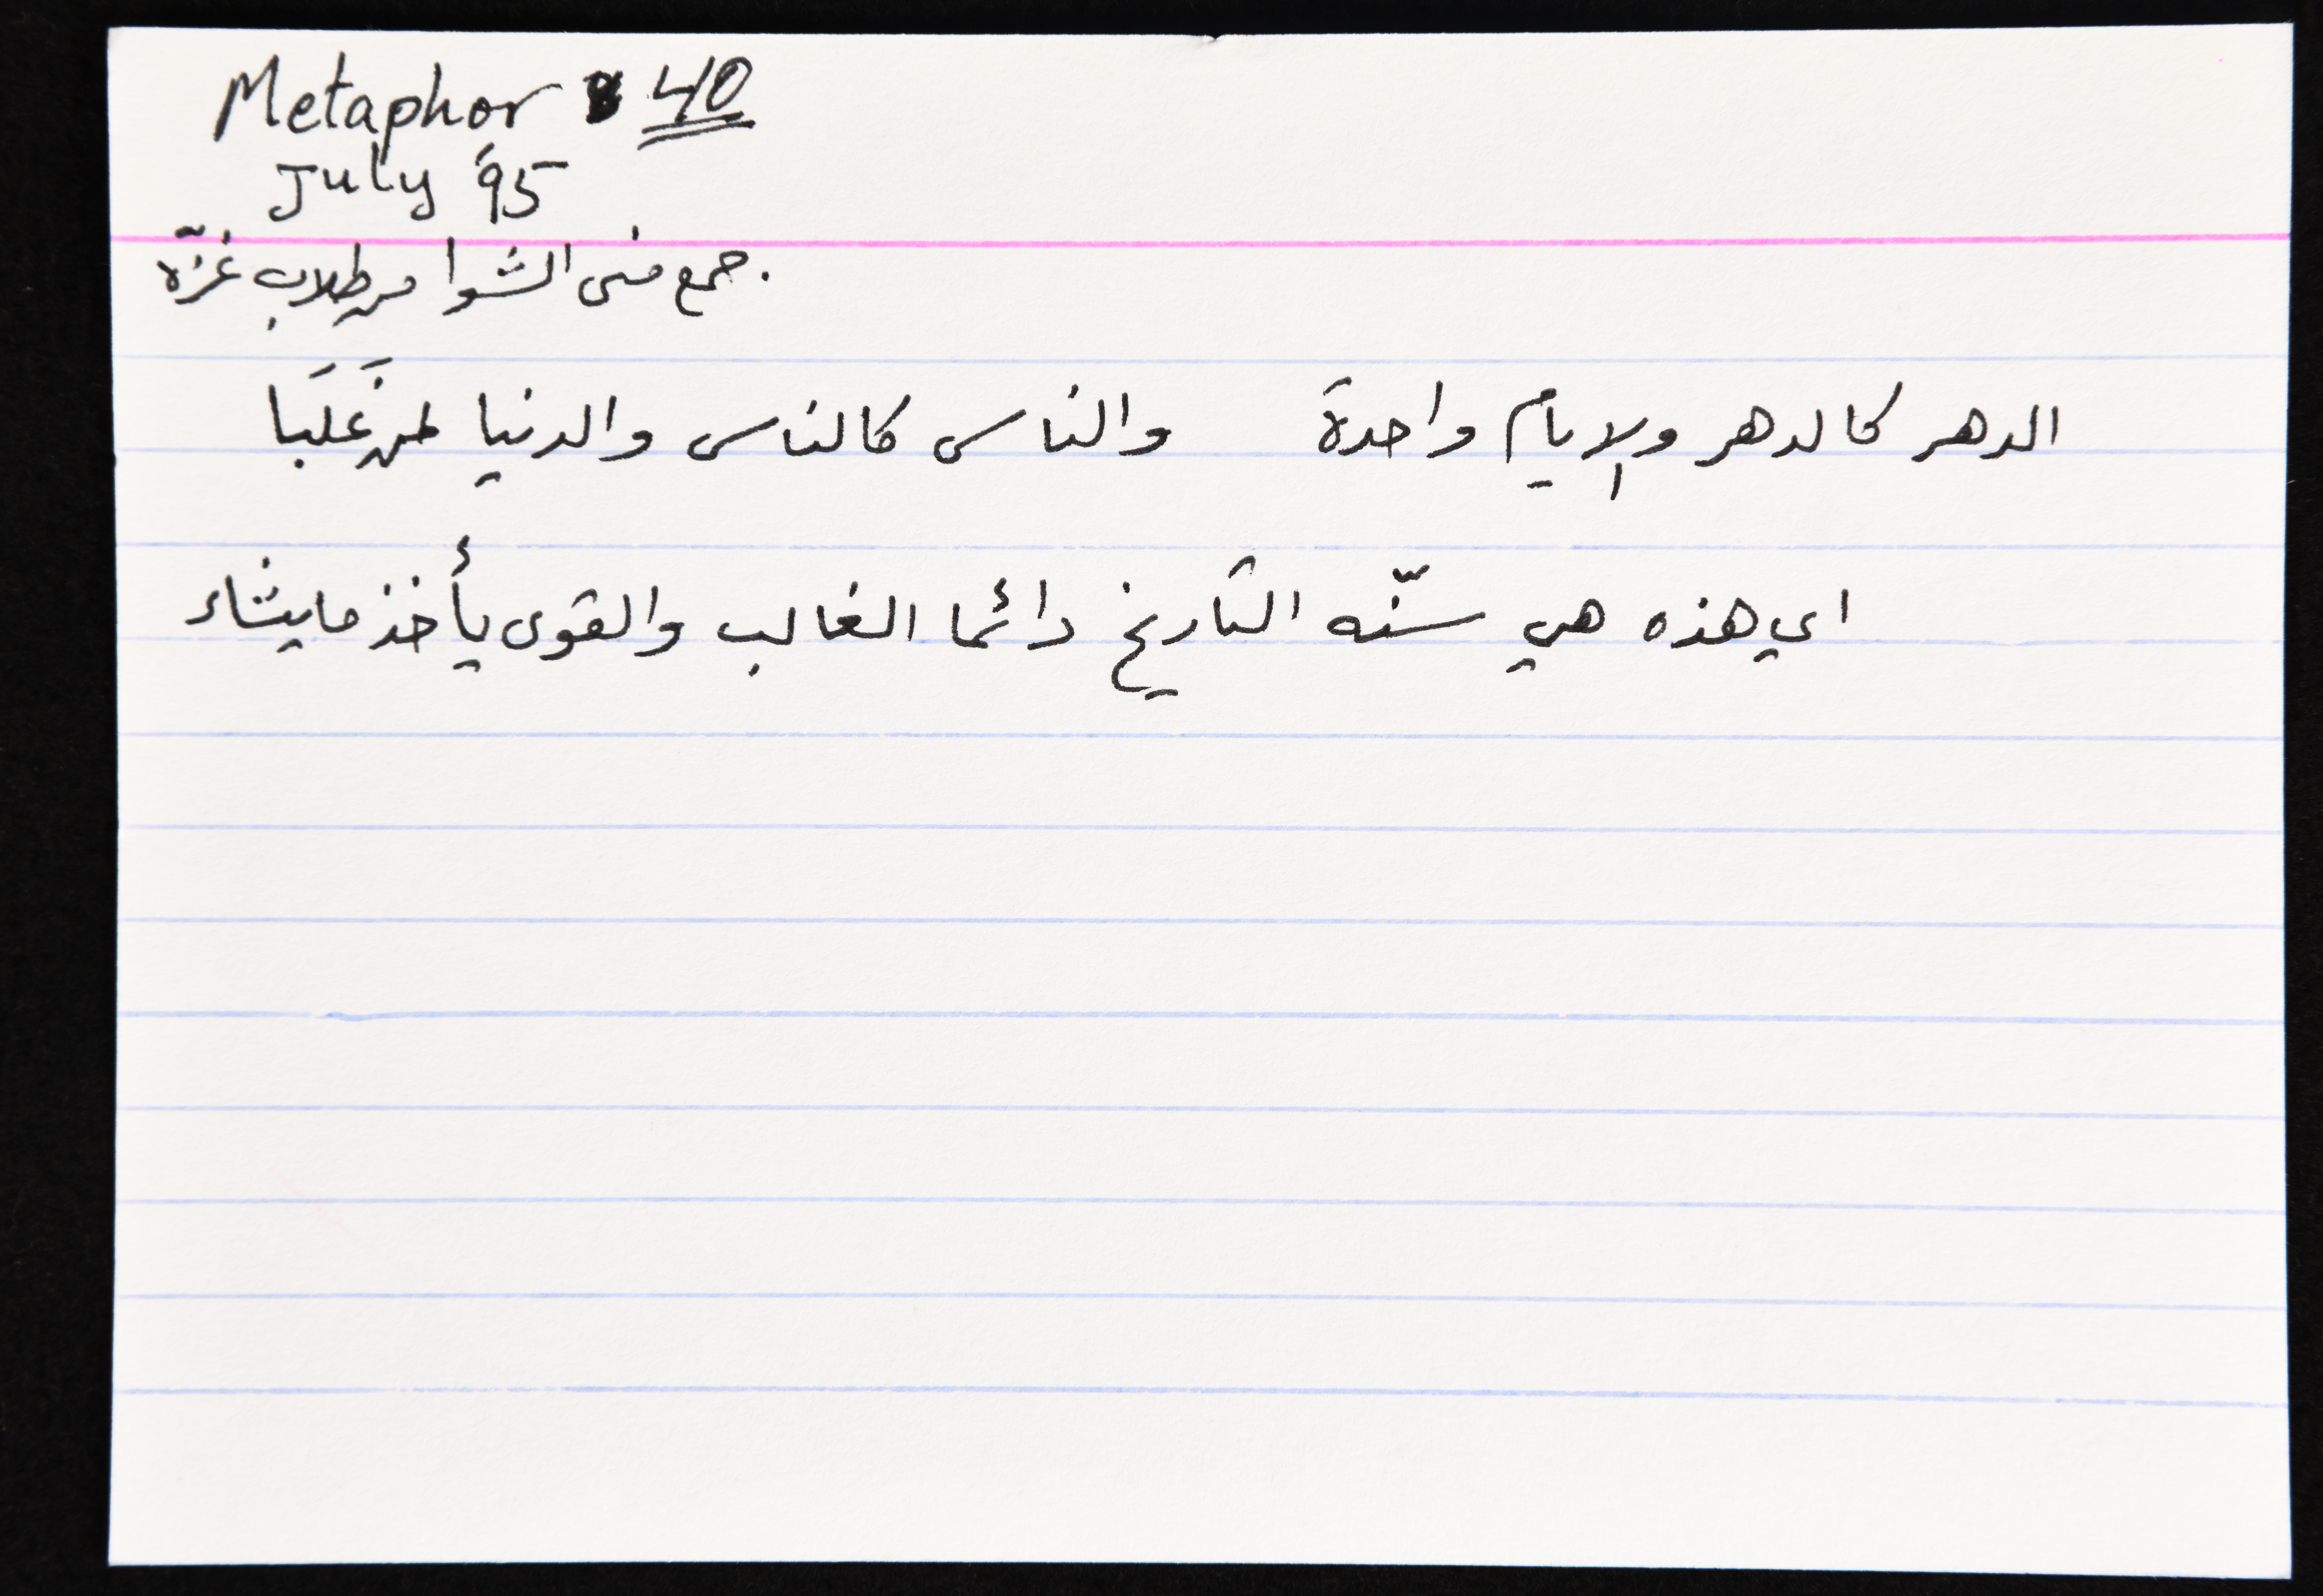 Metaphor 40
July '95
جمع منى الشوا من طلاب غزّه
الدهر كالدهر والايام واحدة والناس كالناس والدنيا لمن غَلَبَا
اي هذه هي سنّه التاريخ دائما الغالب والقوى يأخذ ما يشاء